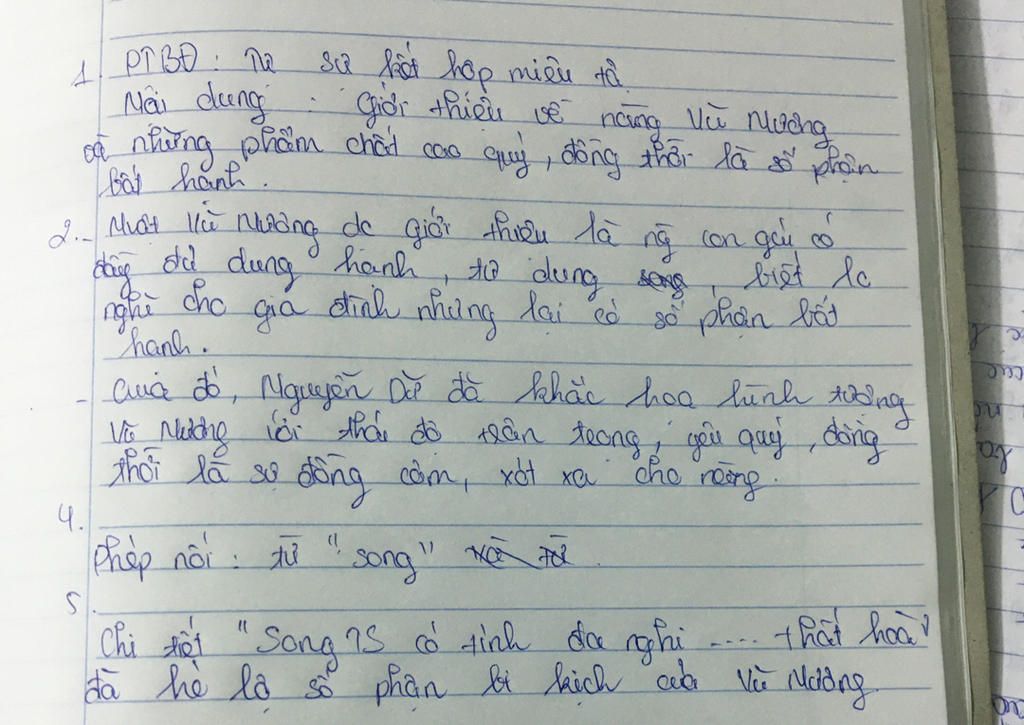 1. PTBĐ: Tự sự kết hợp miêu tả
Nội dung: Giới thiệu về nàng Vũ Nương
và những phẩm chất cao quý, đồng thời là số phận
bất hạnh.
2.- Vũ Nương dc giới thiệu là ng con gái có
đầy đủ dung hạnh, tư dung song, biết lo
nghĩ cho gia đình nhưng lại có số phận bất
hạnh.
- Qua đó, Nguyễn Dữ đã khắc hoạ hình tượng
Vũ Nương với thái độ trân trọng, yêu quý, đồng
thời là sự đồng cảm, xót xa cho nàng.
4.
Phép nối: từ "song"
5.
Chi tiết "Song TS có tính đa nghi .... thất hoà"
đã hé lộ số phận bi kịch của Vũ Nương